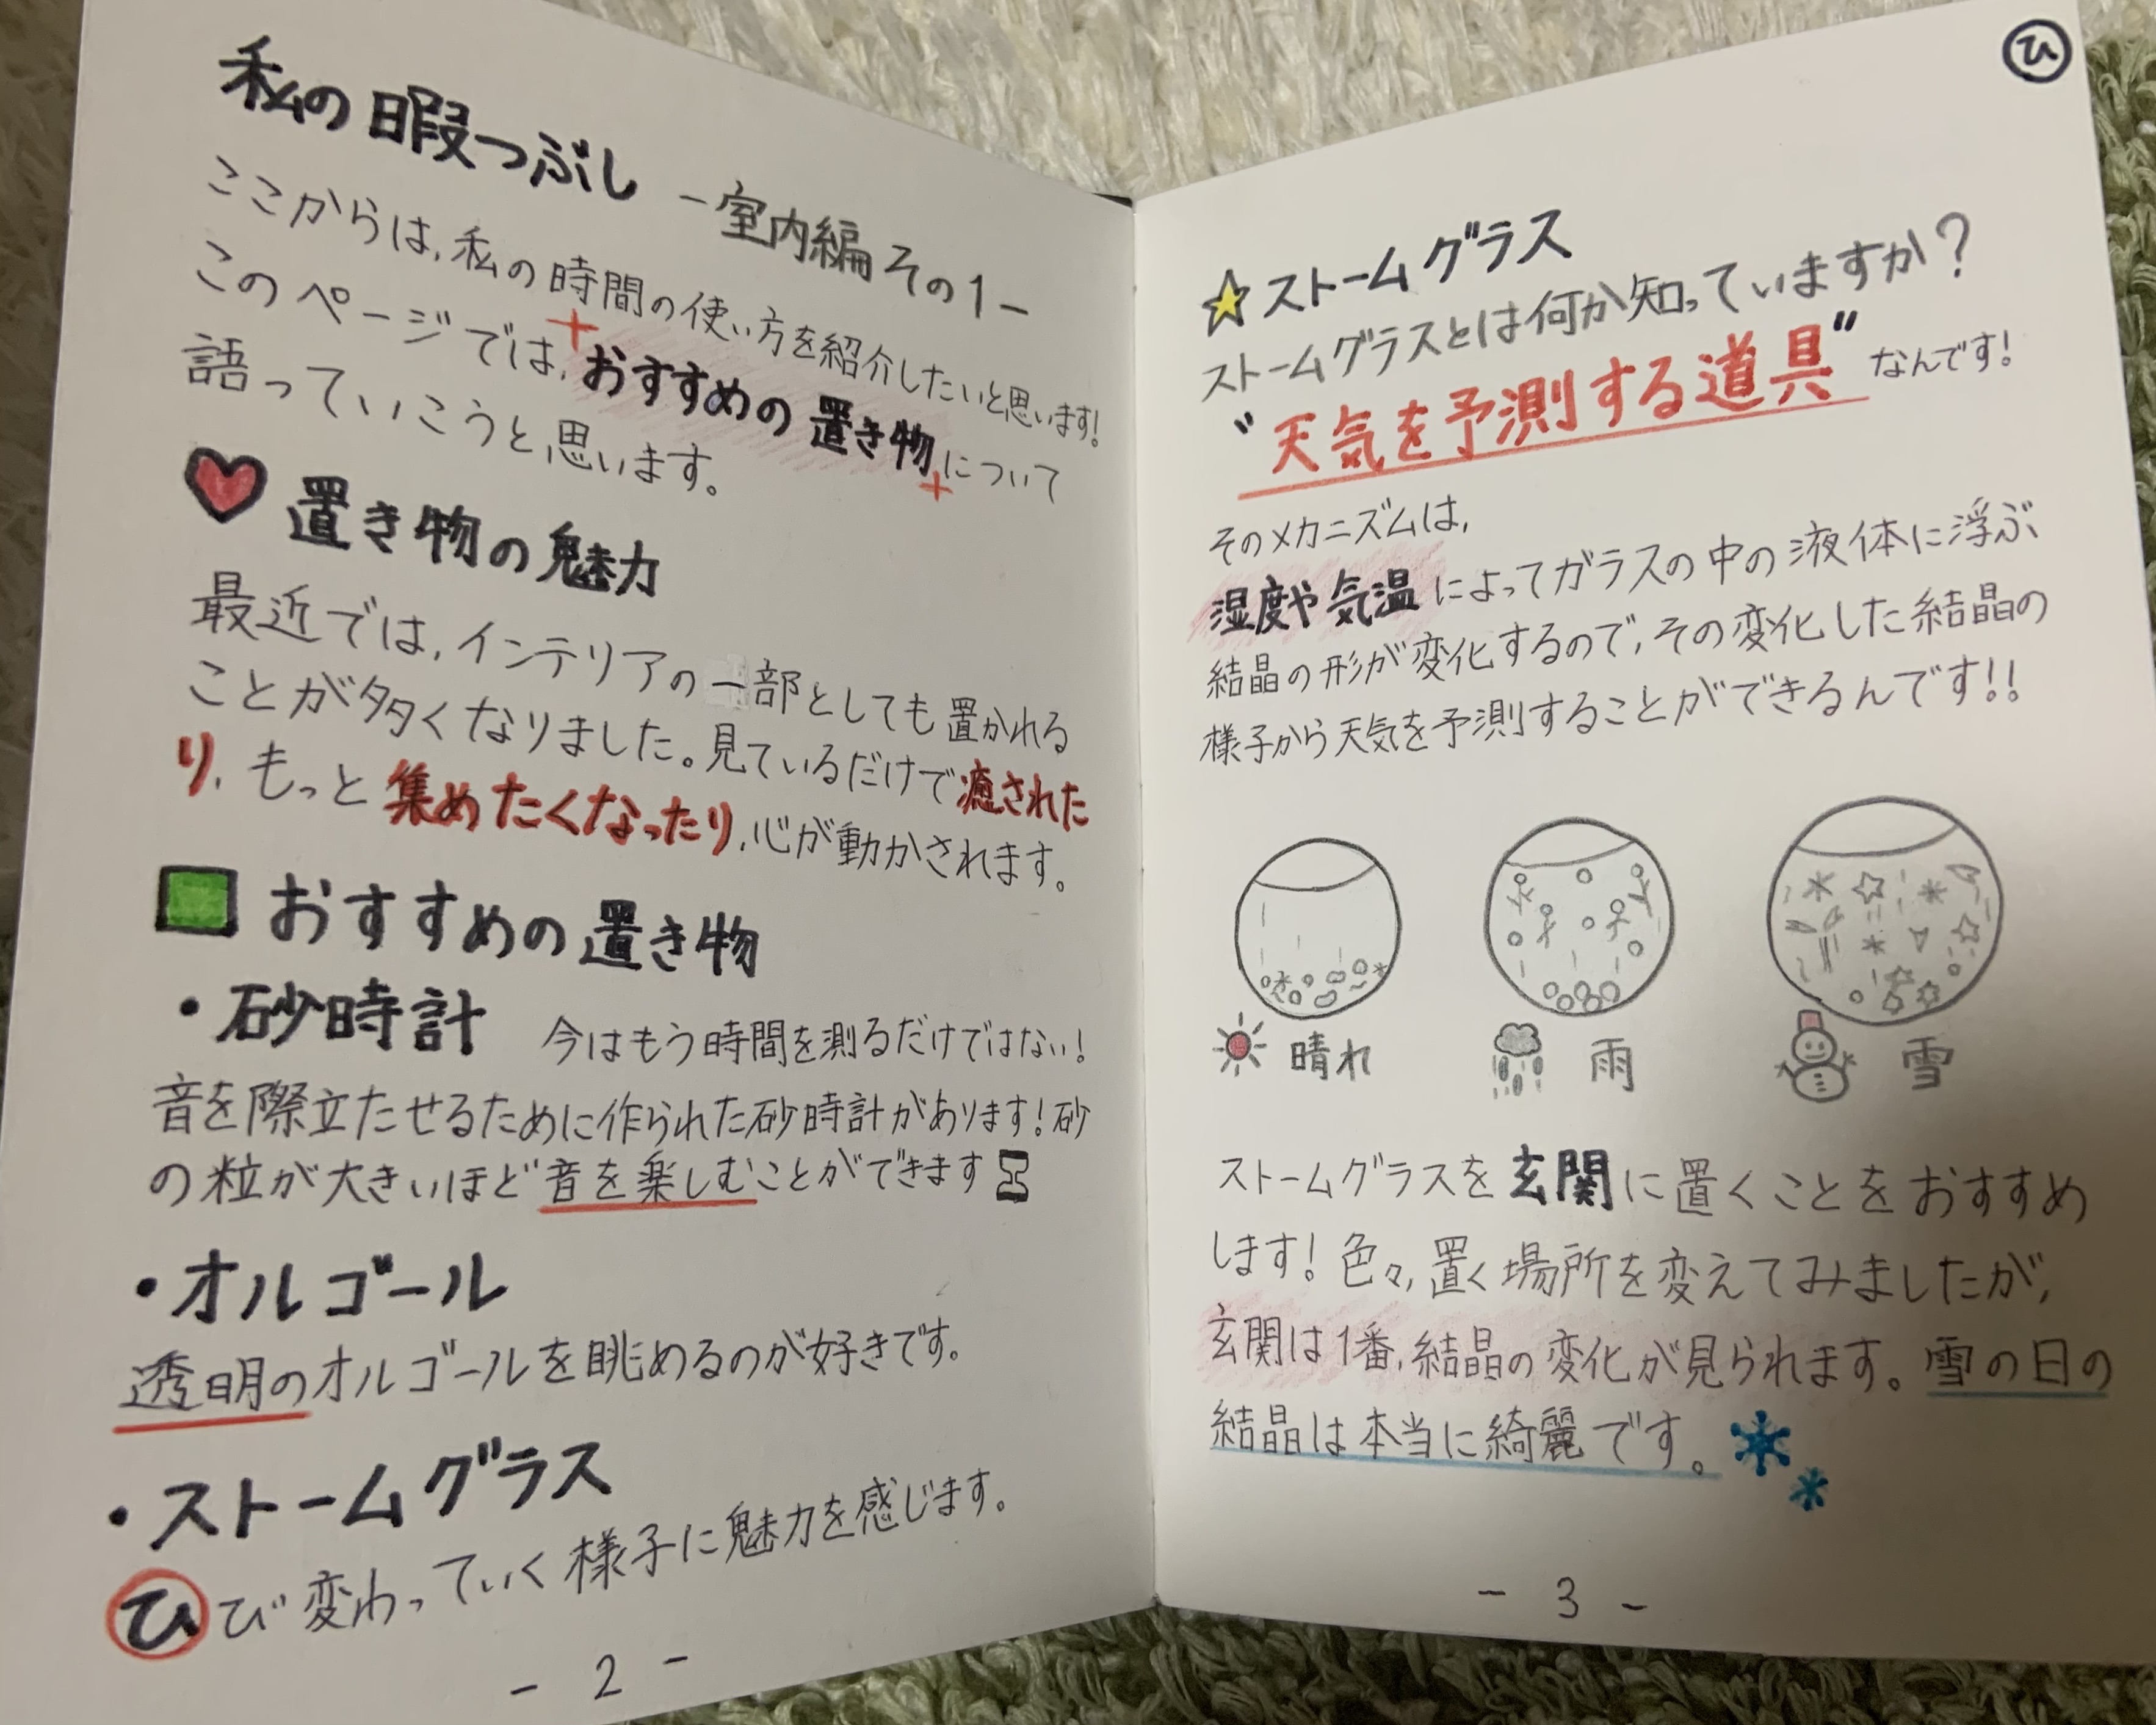 私の暇つぶし －室内編その1－
ここからは、私の時間の使い方を紹介したいと思います!
このページでは、おすすめの置き物について
語っていこうと思います。
置き物の魅力
最近では、インテリアの一部としても置かれる
ことが多くなりました。見ているだけで癒された
り、もっと集めたくなったり、心が動かされます。
おすすめの置き物
・砂時計 今はもう時間を測るだけではない!
音を際立たせるために作られた砂時計があります!砂
の粒が大きいほど音を楽しむことができます
・オルゴール
透明のオルゴールを眺めるのが好きです。
・ストームグラス
ひび変わっていく様子に魅力を感じます。
- 2 -
ひ
☆ストームグラス
ストームグラスとは何か知っていますか?
"天気を予測する道具"なんです!
そのメカニズムは、
湿度や気温によってガラスの中の液体に浮ぶ
結晶の形が変化するので、その変化した結晶の
様子から天気を予測することができるんです!!
晴れ 雨 雪
ストームグラスを玄関に置くことをおすすめ
します!色々、置く場所を変えてみましたが、
玄関は1番、結晶の変化が見られます。雪の日の
結晶は本当に綺麗です。
- 3 -